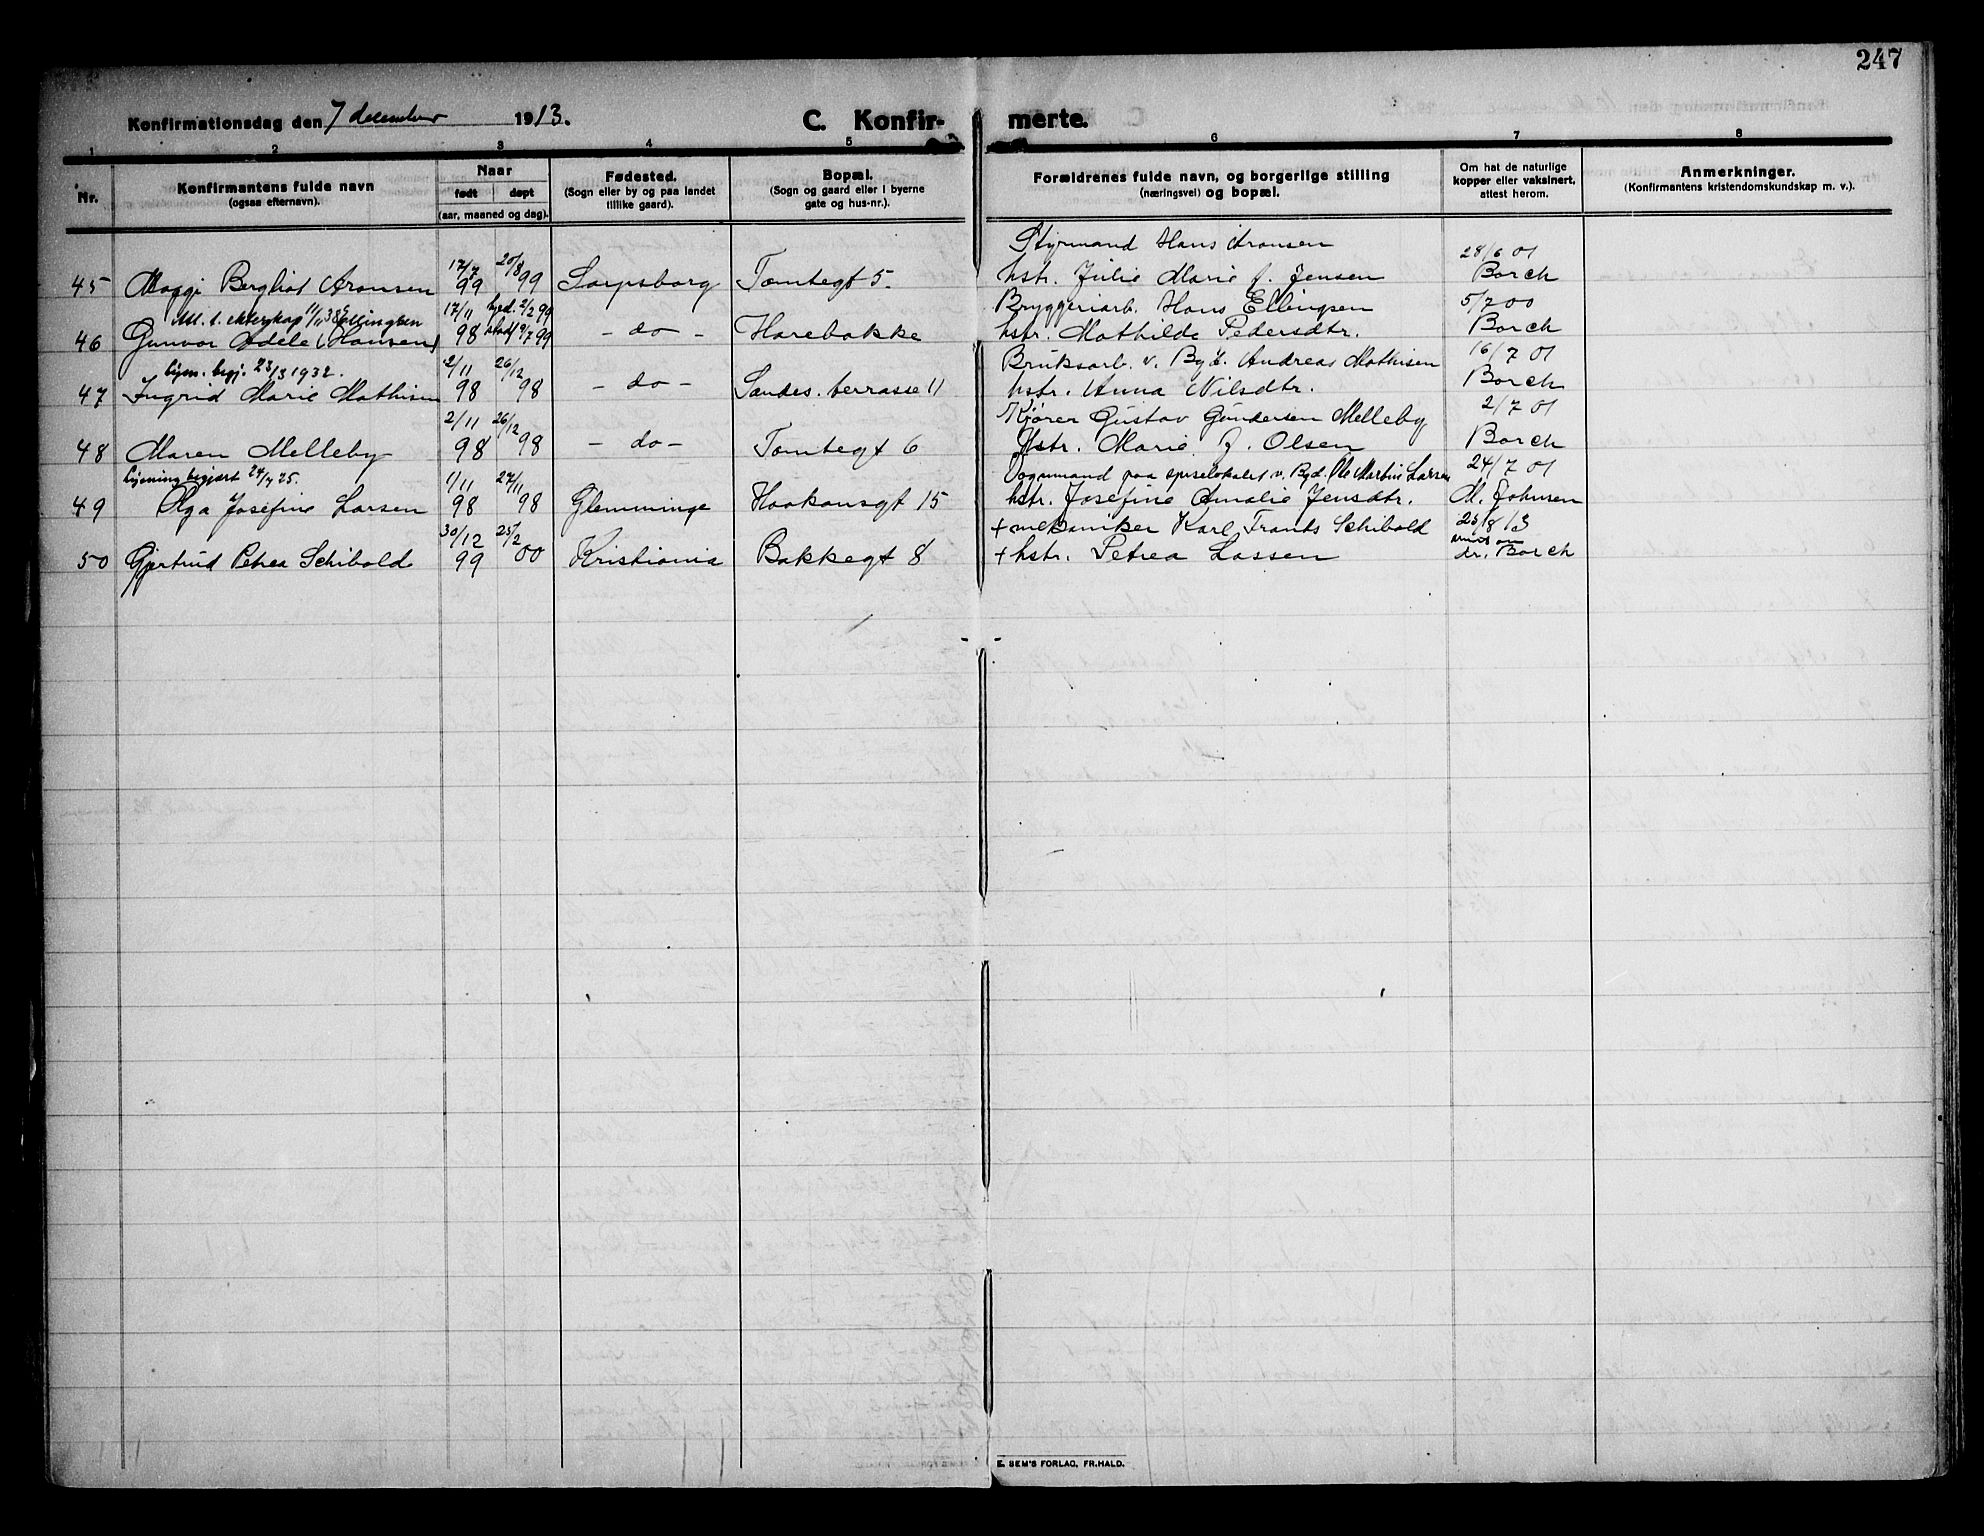 247
Konfirmationsdag den 7 december 1913.
C. Konfir- merte.
1 2 3 4 5 6 7 8
Nr.
Konfirmantens fulde navn
(ogsaa efternavn).
Naar
født døpt
(aar, maaned og dag).
Fødested.
(Sogn eller by og paa landet
tillike gaard).
Bopæl.
(Sogn og gaard eller i byerne
gate og hus-nr.).
Forældrenes fulde navn, og borgerlige stilling
(næringsvei) og bopæl.
Om hat de naturlige
kopper eller vaksinert,
attest herom.
Anmerkninger.
(Konfirmantens kristendomskundskap m. v.).
17/7 20/8 Styrmand Hans Aronsen 28/6 01
45 Maggi Bergliot Aronsen 99 99 Sarpsborg Tomtegt 5. hstr. Julie Marie f. Jensen Borch
Att. t. ekteskap 1/11 38 Ellingsen 17/11 hjed. 2/2 99 Bryggeriarb. Hans Ellingsen 5/7 00
46 Gunvor Adele (Hansen) 98 stadf 9/7 99 - do - Harebakke hstr. Mathilde Pedersdtr. Borch
lysn. begj. 23/3 1932. 2/11 26/12 Bruksarb. v. Andreas Mathisen 16/7 01
47 Ingrid Marie Mathisen 98 98 - do - Sandes. terrasse 11 hstr. Anna Nilsdtr. Borch
2/11 26/12 Kjører Gustav Gundersen Melleby 2/7 01
48 Maren Melleby 98 98 - do - Tomtegt 6 Hstr. Marie f. Olsen Borch
Lysning begjært 24/4 25. 1/11 27/11 Vognmand paa spiselokalet v. Byd. Ole Martin Larsen 24/7 01
49 Olga Josefine Larsen 98 98 Glemminge Haakonsgt 15 hstr. Josefine Amalie Jensdtr. M. Johnsen
30/12 25/2 + mekaniker Karl Frants Schibold 23/8 13
50 Gjertrud Petrea Schibold 99 00 Kristiania Bakkegt 8 + hstr. Petrea Lassen dr. Borch
E. SEM'S FORLAG, FR.HALD.